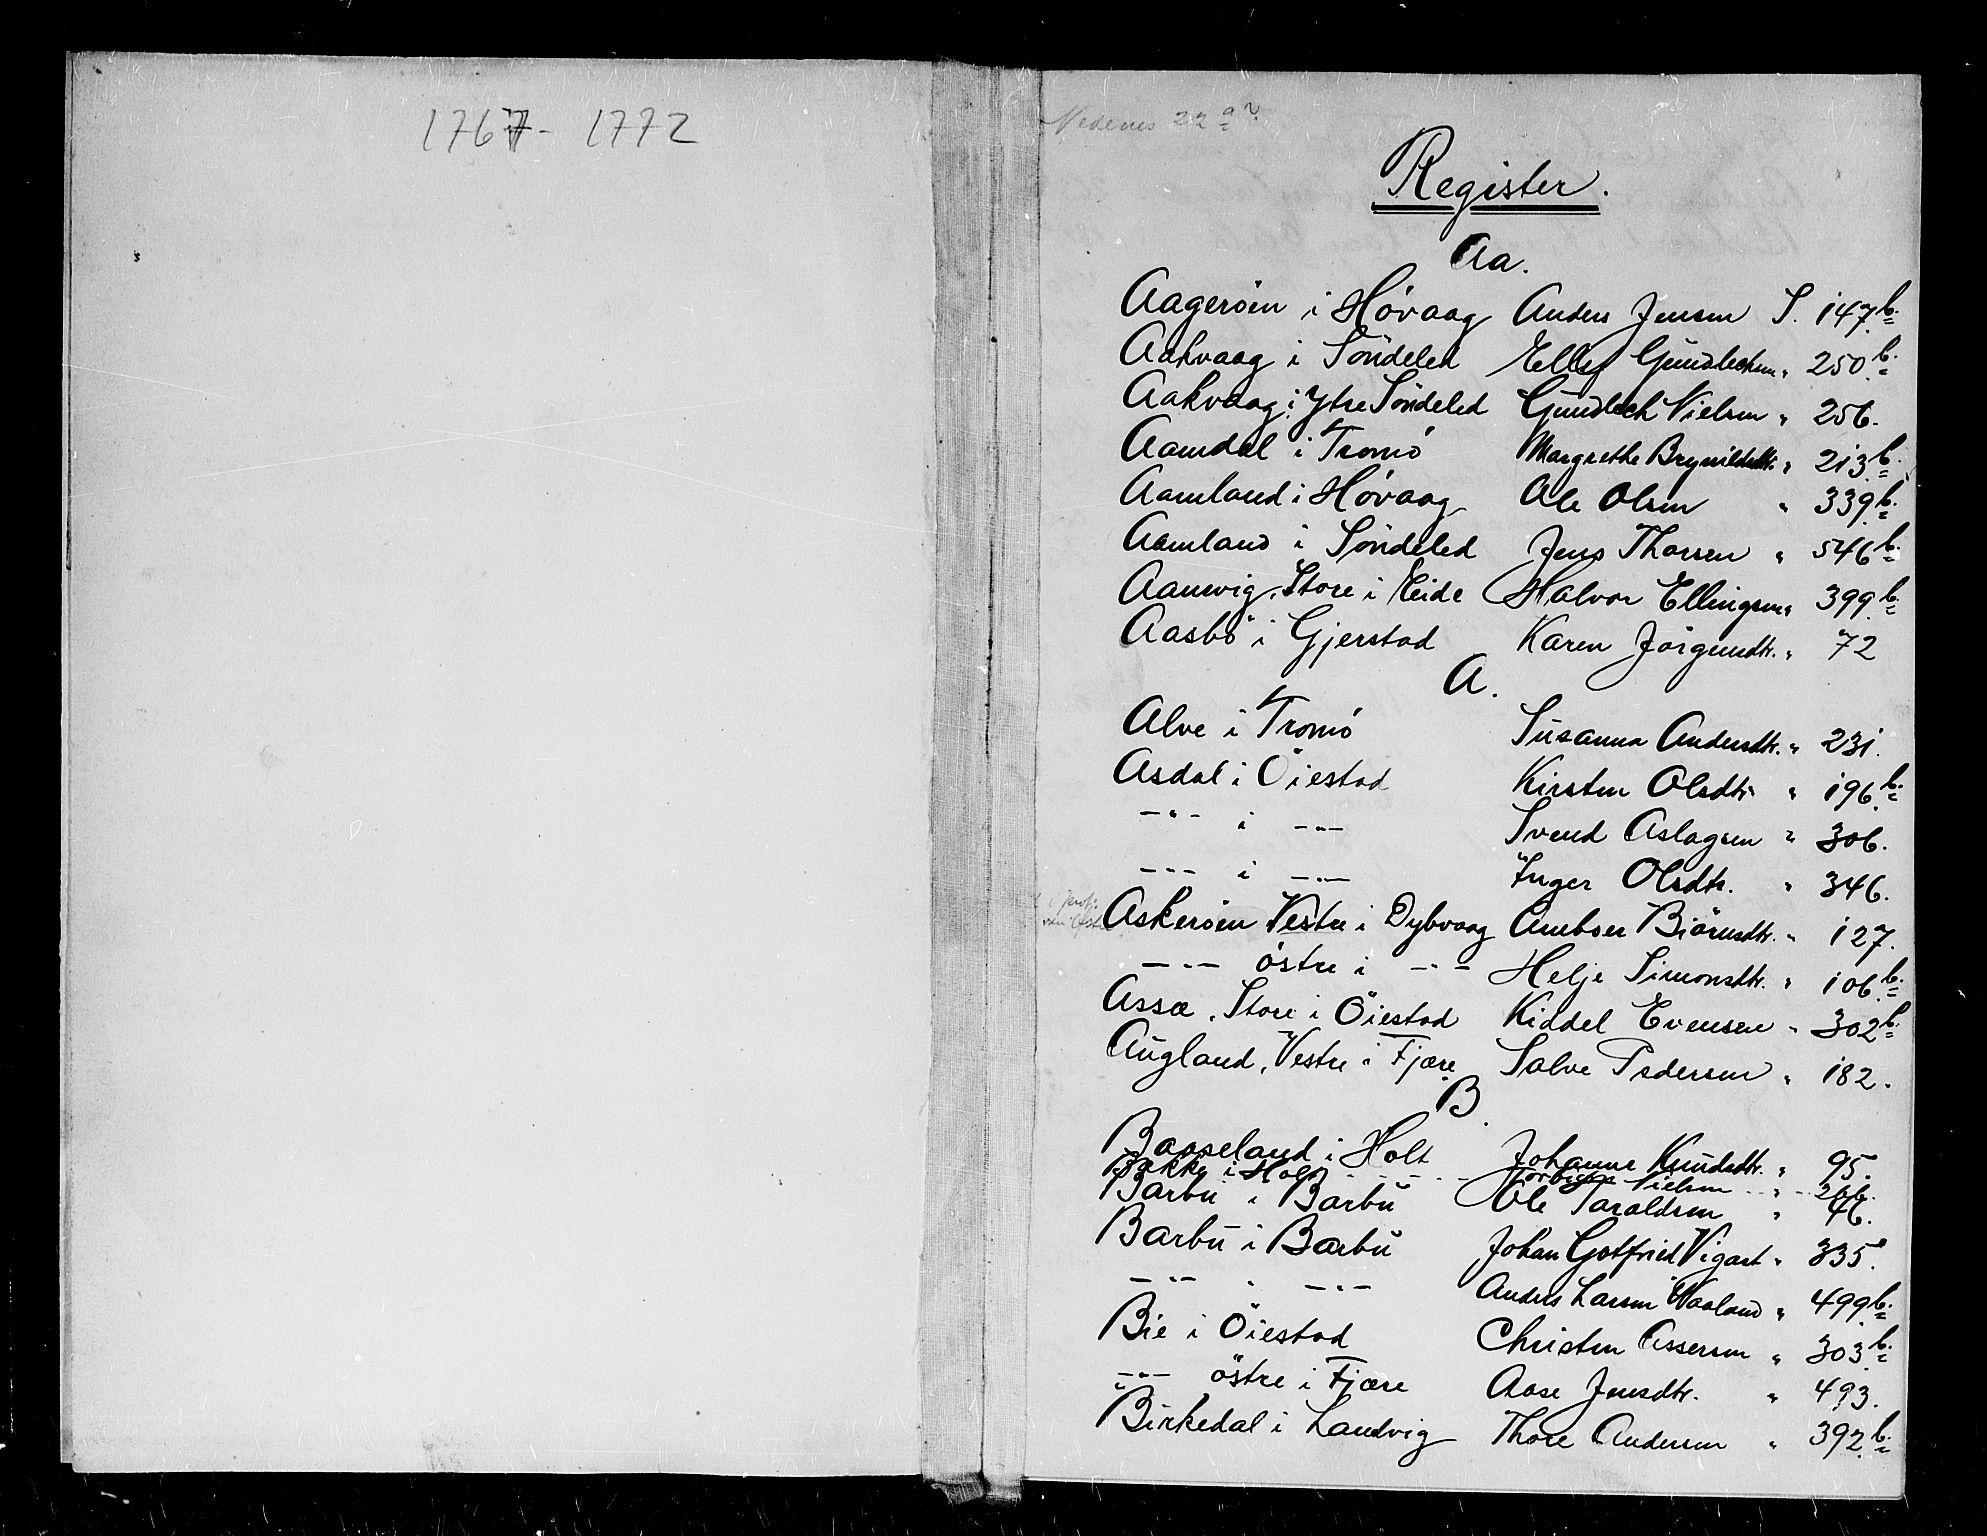 1767 - 1772
Nedenes 22 a
Register.
Aa.
Aagerøen i Høvaag Anders Jensen S. 147 b.
Aakvaag i Søndeled Ellef Gundlechsen " 250 b.
Aakvaag i Ytre Søndeled Gundlech Nielsen " 256.
Aamdal i Tromø Margrethe Brynildsdtr. " 213 b.
Aamland i Høvaag Ole Olsen " 339 b.
Aamland i Søndeled Jens Thorsen " 546 b.
Aamvig, Store i Eide Halvor Ellingsen " 399 b.
Aasbø i Gjerstad Karen Jørgensdtr. " 72
A.
Alve i Tromø Susanna Andersdtr. " 231.
Asdal i Öiestad Kirsten Olsdtr " 196 b.
—"— i —"— Svend Aslagsen " 306.
—"— i —"— Inger Olsdtr. " 346.
Askerøen Vestre i Dybvaag Anebor Biörnsdtr. " 127.
—"— östre i —"— Helje Simonsdtr. " 106 b.
Assæ, Store i Öiestad Kiddel Evensen " 302 b.
Augland, Vestre i Fjære Salve Pedersen " 182.
B.
Baaseland i Holt Johanne Knudsdtr. " 95.
Bakke i Holt Torbiørn Nielsen " 266.
Barbu i Barbu Ole Taraldsen " 46.
Barbu i Barbu Johan Gotfried Vigant " 335.
—"— " —"— Anders Larsen Waaland " 499 b.
Bie i Öiestad Christen Assersen " 303 b.
—"— östre i Fjære Aase Jensdtr. " 493.
Birkedal i Landvig Thore Andersen " 392 b.